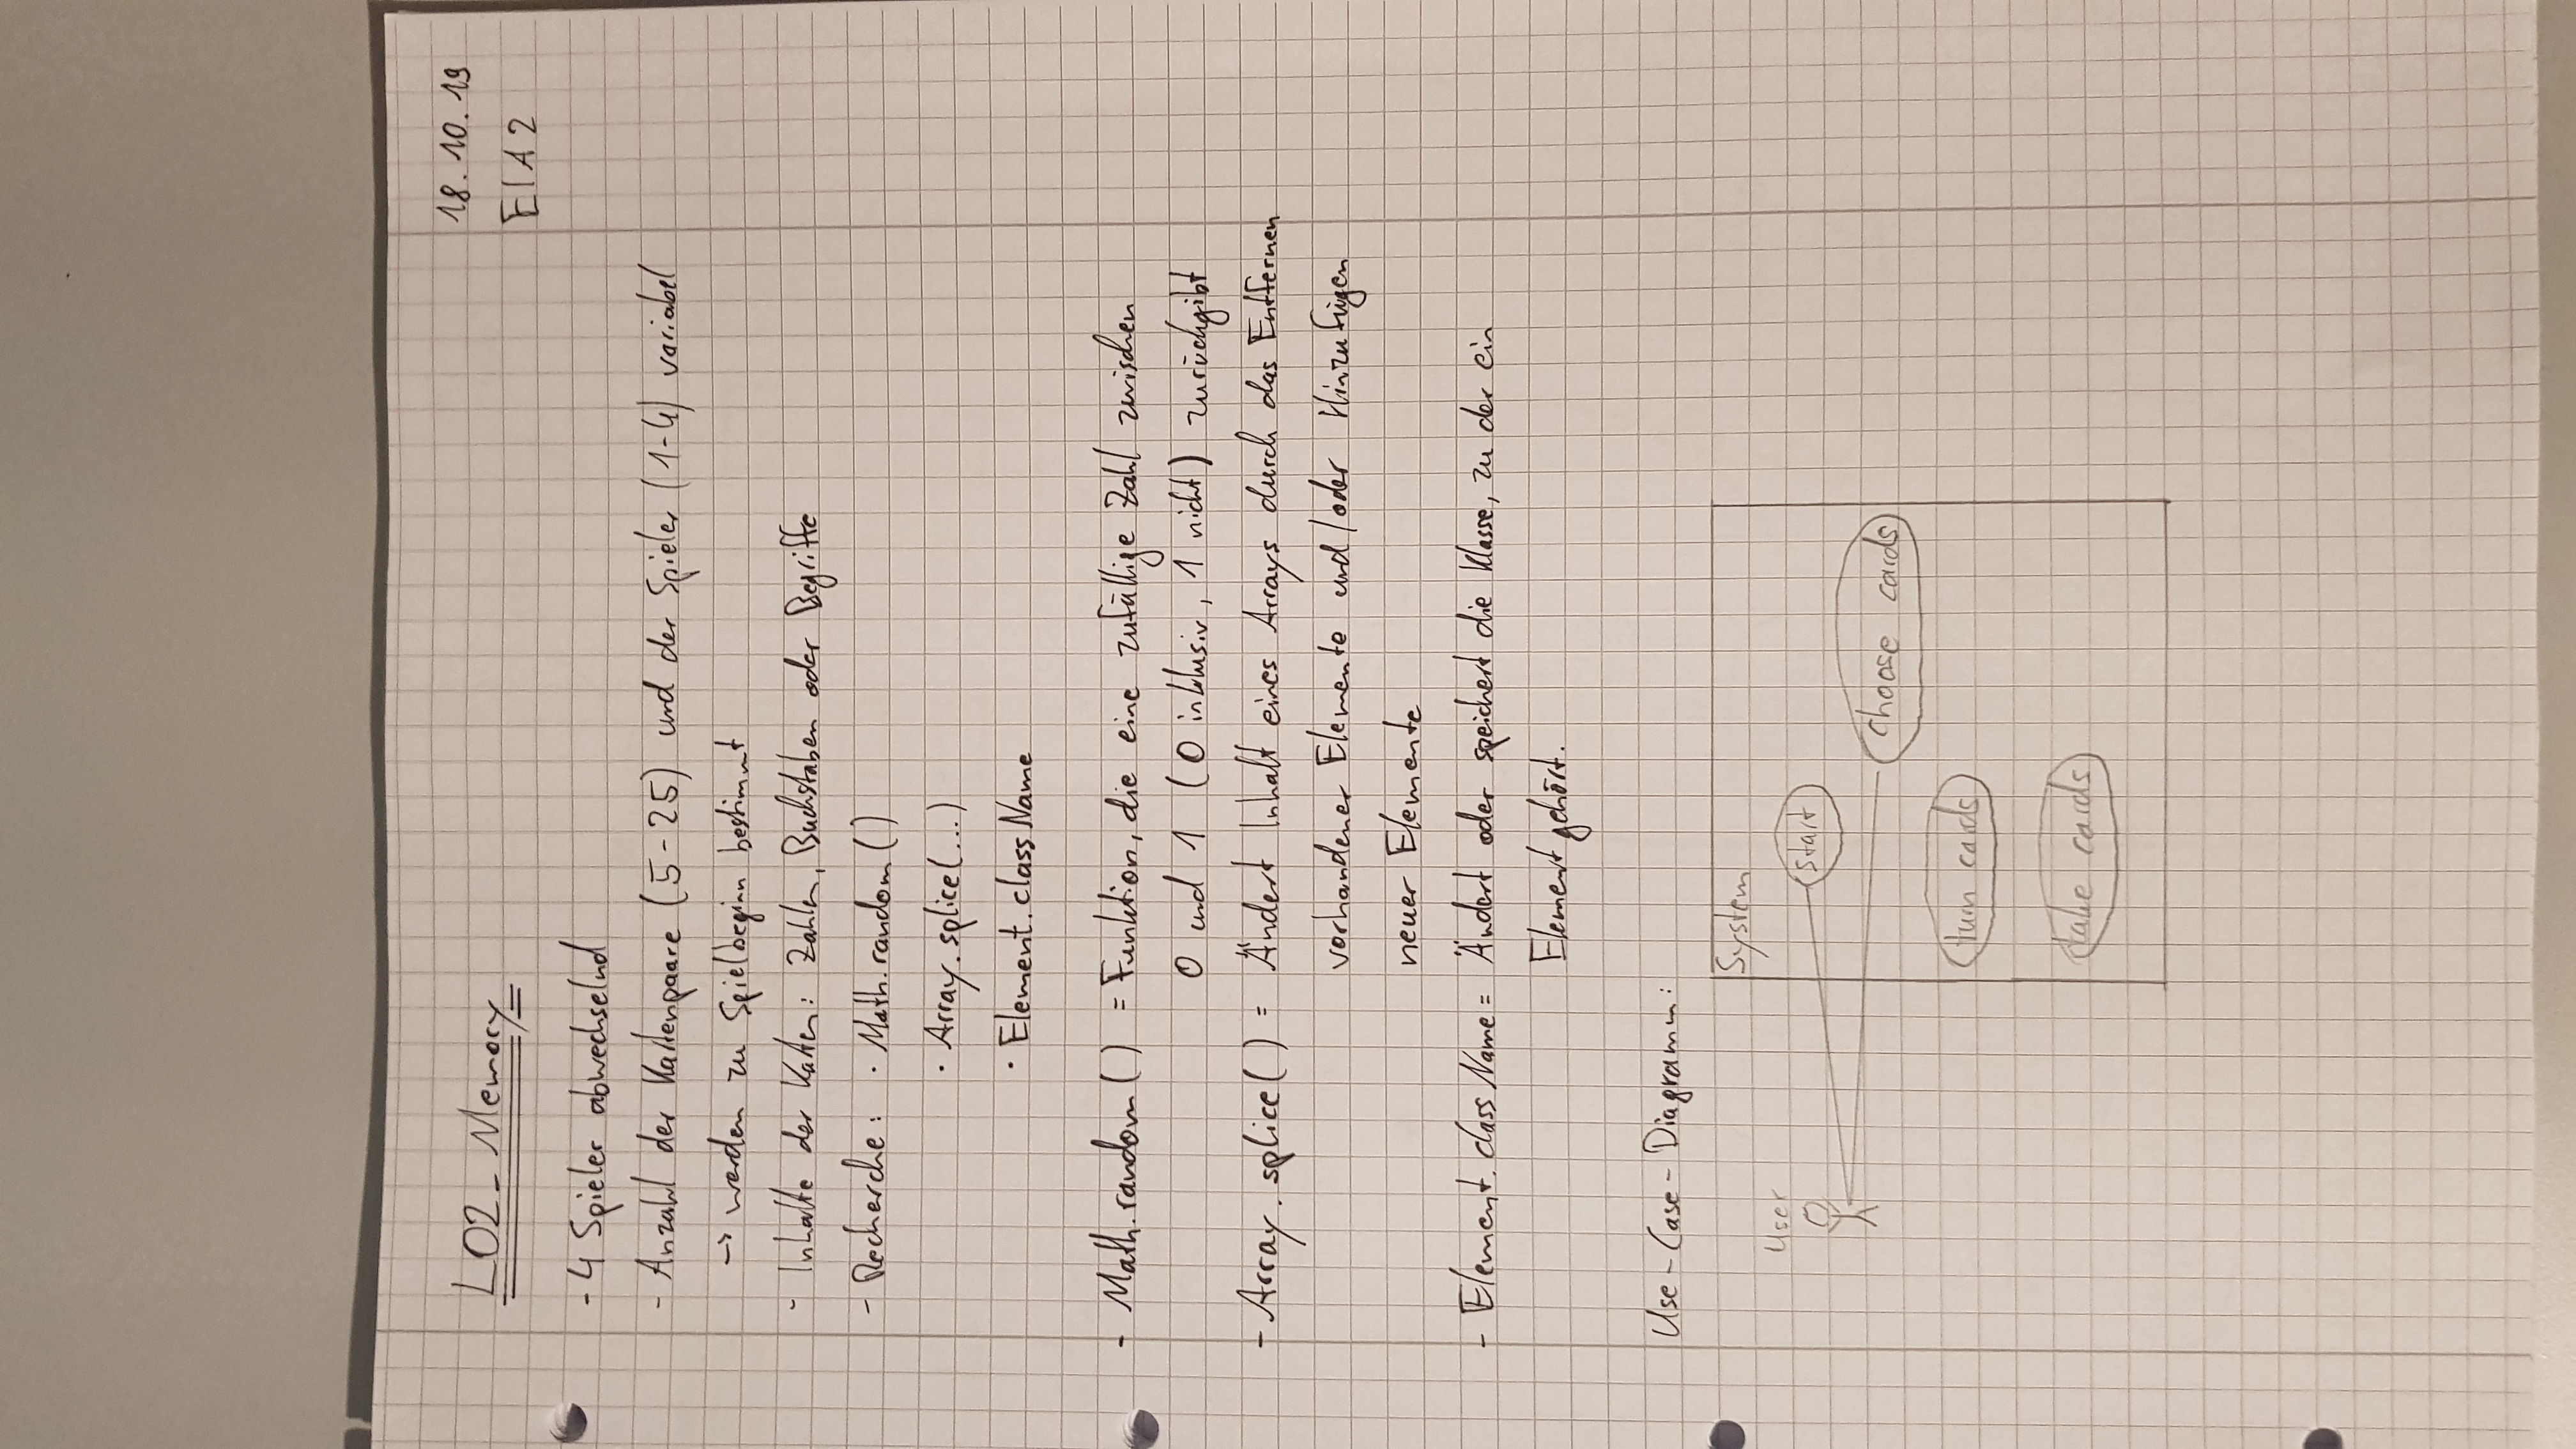 18.10.19
L02-Memory
EIA2
- 4 Spieler abwechselnd
- Anzahl der Kartenpaare (5-25) und der Spieler (1-4) variabel
-> werden zu Spielbeginn bestimmt
- Inhalte der Karten: Zahlen, Buchstaben oder Begriffe
- Recherche: · Math.random()
· Array.splice(...)
· Element.className
- Math.random() = Funktion, die eine zufällige Zahl zwischen
0 und 1 (0 inklusiv, 1 nicht) zurückgibt
- Array.splice() = Ändert Inhalt eines Arrays durch das Entfernen
vorhandener Elemente und/oder Hinzufügen
neuer Elemente
- Element.className = Ändert oder speichert die Klasse, zu der ein
Element gehört.
Use-Case-Diagramm:
System
User
start
choose cards
turn cards
take cards